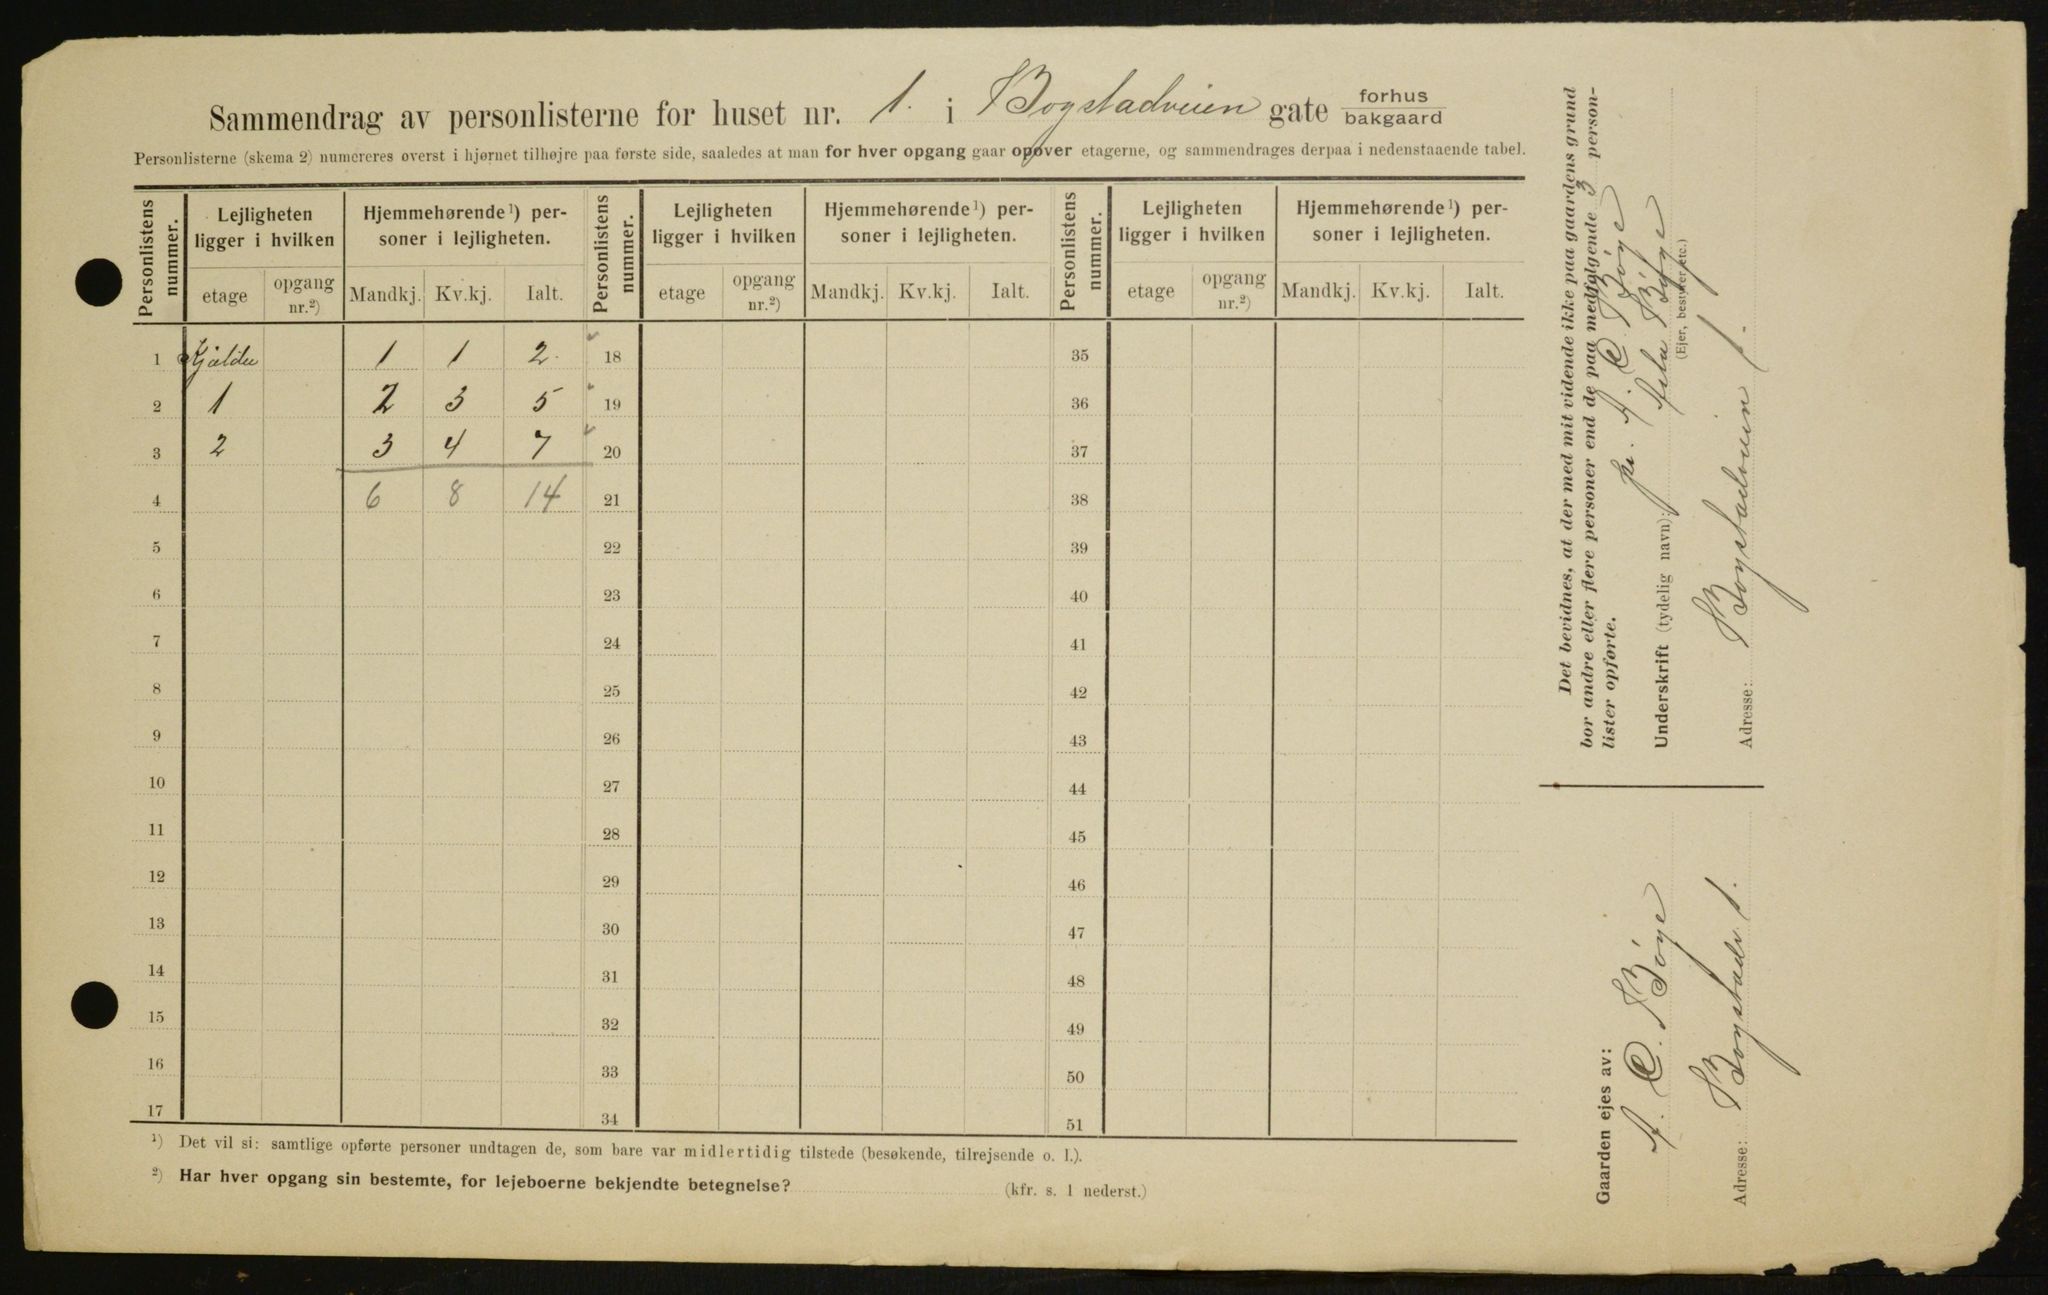 Sammendrag av personlisterne for huset nr. 1. i Bogstadveien gate forhus bakgaard
Personlisterne (skema 2) numereres øverst i hjørnet tilhøjre paa første side, saaledes at man for hver opgang gaar opover etagerne, og sammendrages derpaa i nedenstaaende tabel.
Personlistens nummer. Lejligheten ligger i hvilken Hjemmehørende ¹) personer i lejligheten. Personlistens nummer. Lejligheten ligger i hvilken Hjemmehørende ¹) personer i lejligheten. Personlistens nummer. Lejligheten ligger i hvilken Hjemmehørende ¹) personer i lejligheten.
etage opgang nr.²) Mandkj. Kv.kj. Ialt. etage opgang nr.²) Mandkj. Kv.kj. Ialt. etage opgang nr.²) Mandkj. Kv.kj. Ialt.
1 Kjælder 1 1 2. 18 35
2 1 2 3 5 19 36
3 2 3 4 7 20 37
4 6 8 14 21 38
5 22 39
6 23 40
7 24 41
8 25 42
9 26 43
10 27 44
11 28 45
12 29 46
13 30 47
14 31 48
15 32 49
16 33 50
17 34 51
¹) Det vil si: samtlige opførte personer undtagen de, som bare var midlertidig tilstede (besøkende, tilrejsende o. l.).
²) Har hver opgang sin bestemte, for lejeboerne bekjendte betegnelse? (kfr. s. 1 nederst.)
Det bevidnes, at der med mit vidende ikke paa gaardens grund
bor andre eller flere personer end de paa medfølgende 3 person-
lister opførte.
A. C. Böye
Underskrift (tydelig navn): Böye
(Ejer, bestyrer etc.)
Adresse: Bogstadveien 1.
Gaarden ejes av:
A. C. Böye
Adresse: Bogstadv. 1.